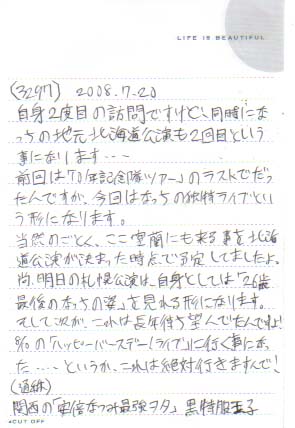 LIFE IS BEAUTIFUL
(3297) 2008.7.20
自身2度目の訪問ですけど、同時にな
っちの地元北海道公演も2回目という
事になります・・・
前回は「10年記念隊ツアー」のラストでだっ
たんですが、今回はなっちの独特ライブとい
う形になります。
当然のごとく、ここ室蘭にも来る事を北海
道公演が決まった時点で予定してましたよ。
尚、明日の札幌公演は、自身としては「26歳
最後のなっちの姿」を見れる形になります。
そしてこれが、これは長年待ち望んでたんですよ!
8/10の「ハッピーバースデー!ライブ」に行く事にあっ
た・・・というか、これは絶対行きますんで!
(通称)
関西の「安倍なつみ最強ヲタ」 黒特服王子
◂CUT OFF